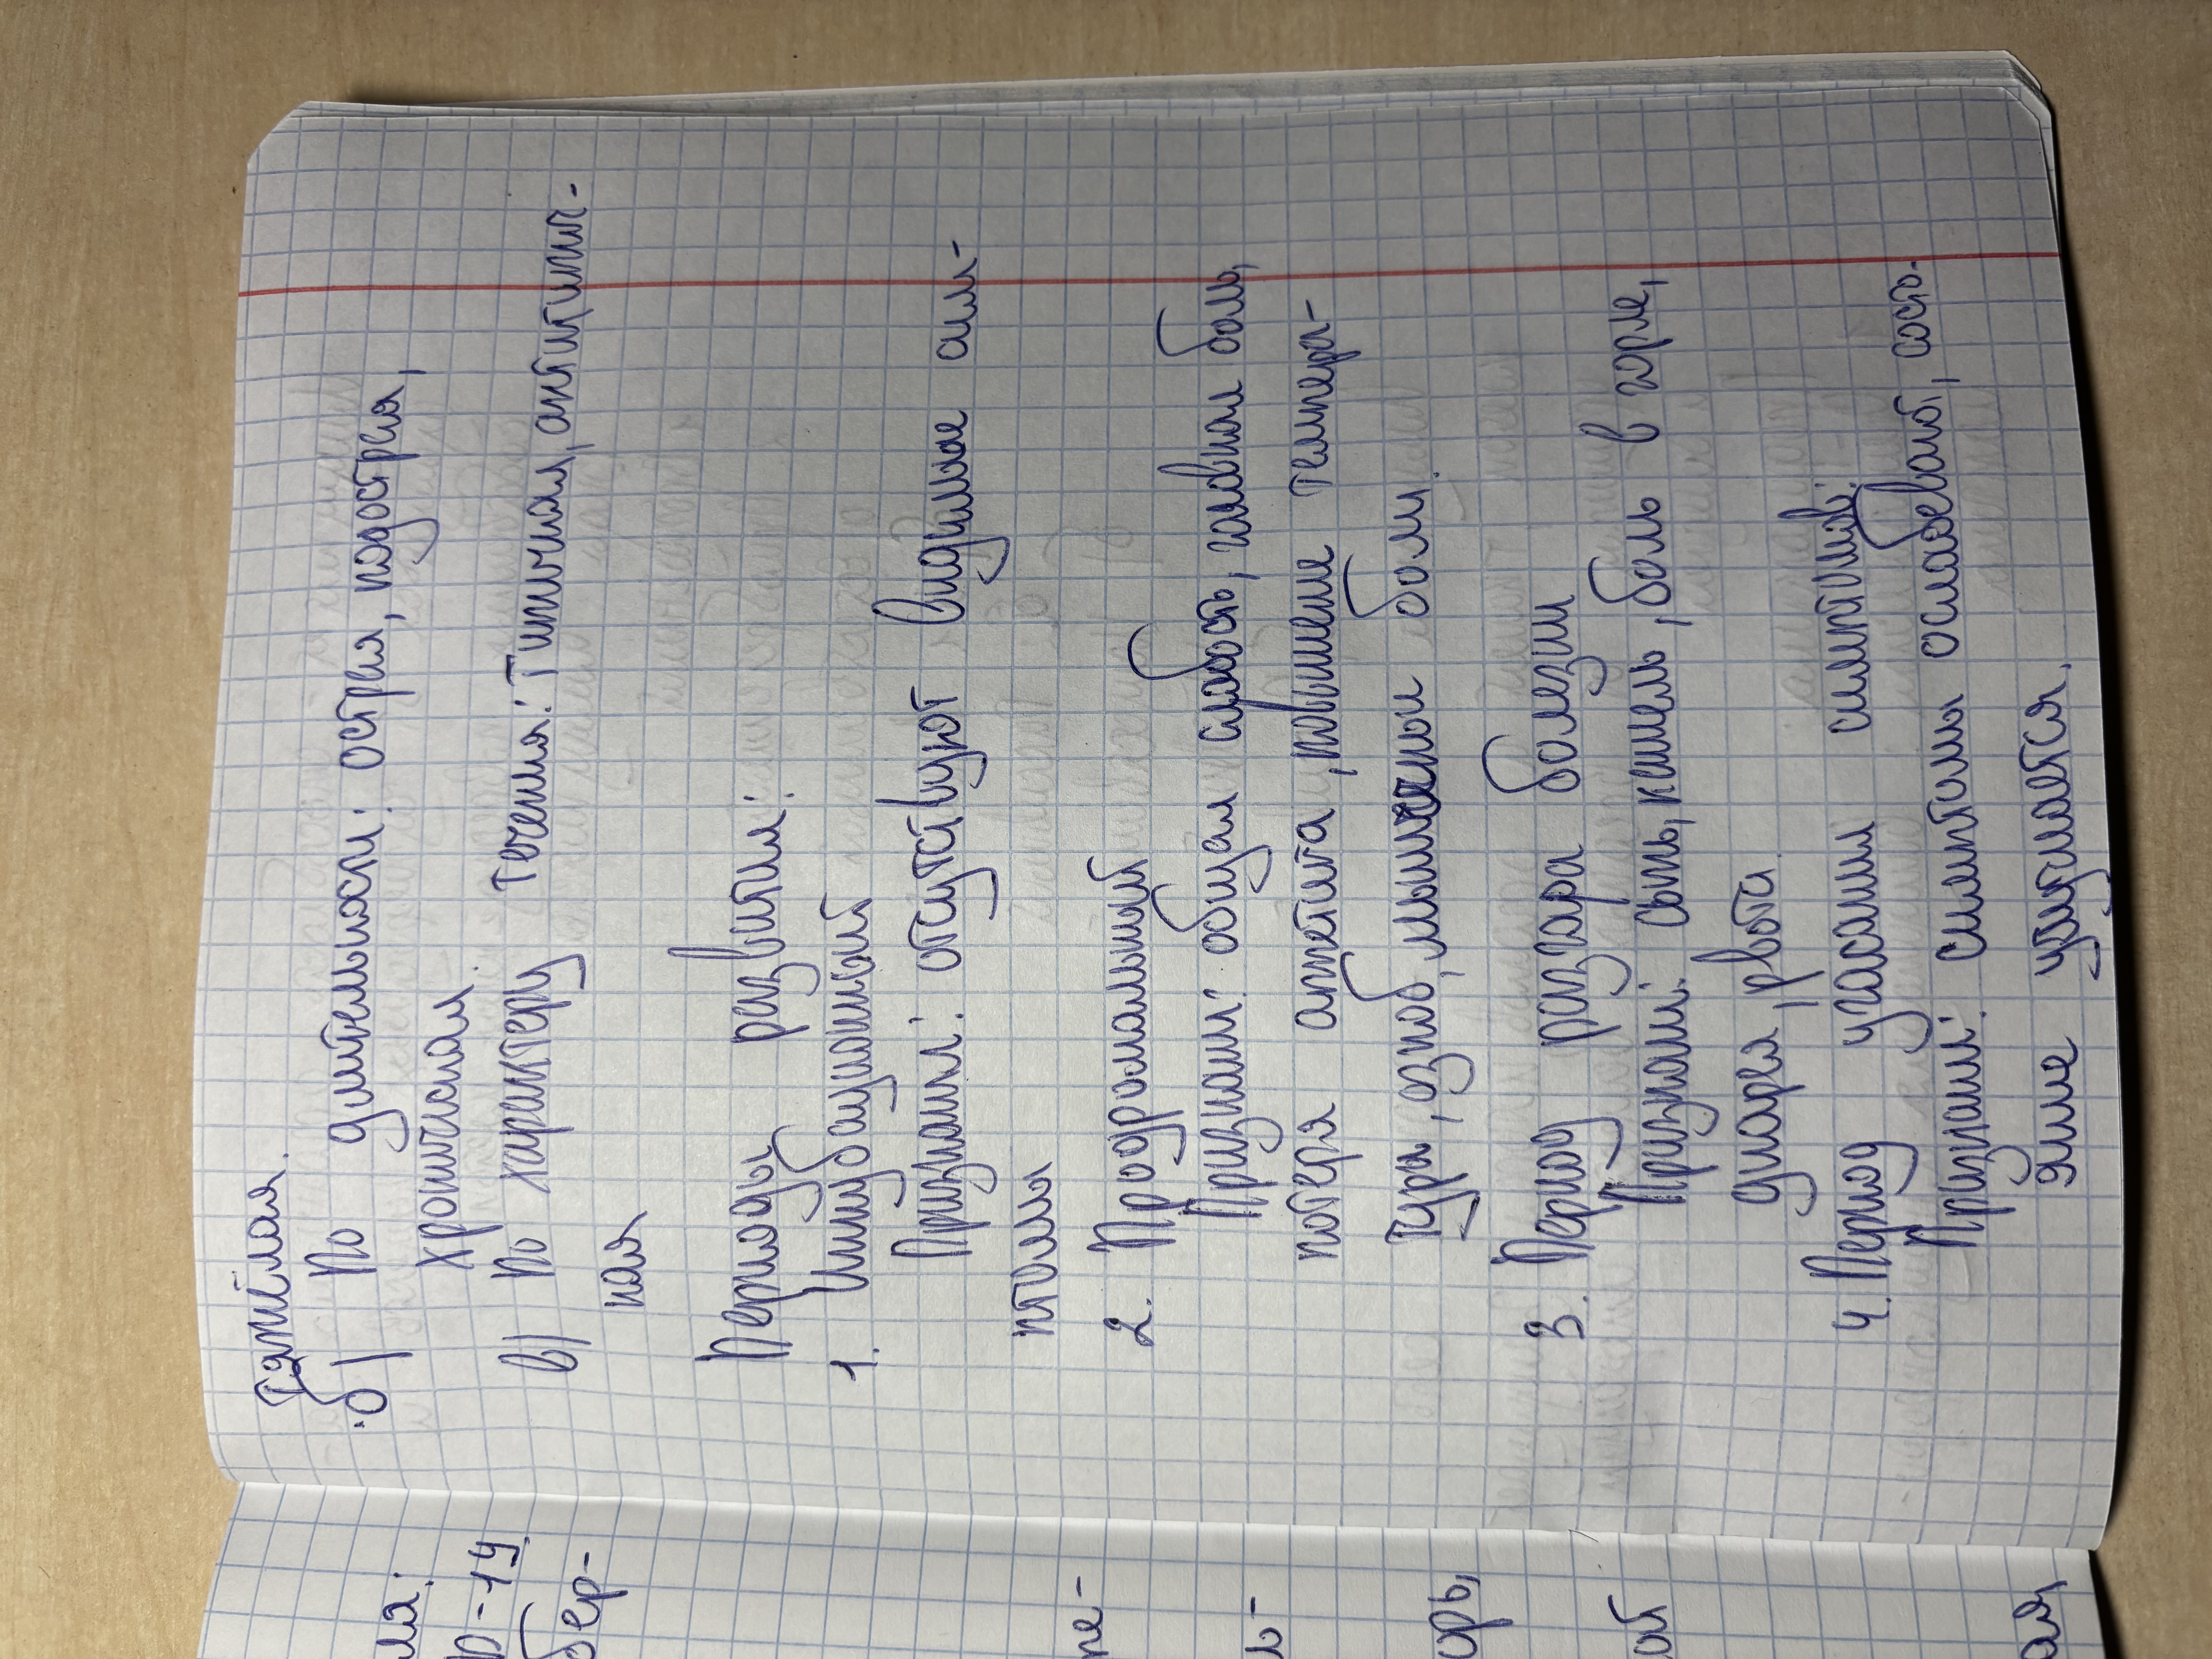 Тяжёлая.
б) По длительности: острая, подострая,
хроническая.
в) По характеру течения: Типичная, антипич-
ная
Периоды развития:
1. Инкубационный
Признаки: отсутствуют видимые сим-
птомы
2. Продромальный
Признаки: общая слабость, головная боль,
потеря аппетита, повышение темпера-
тура, озноб, мышечные боли.
3. Период разгара болезни
Признаки: сыпь, кашель, боль в горле,
диарея, рвота.
4. Период угасания симптомов:
Признаки: симптомы ослабевают, состо-
яние улучшается.
ля:
р-19
бер-
пе-
ь-
орь,
ой
ая,